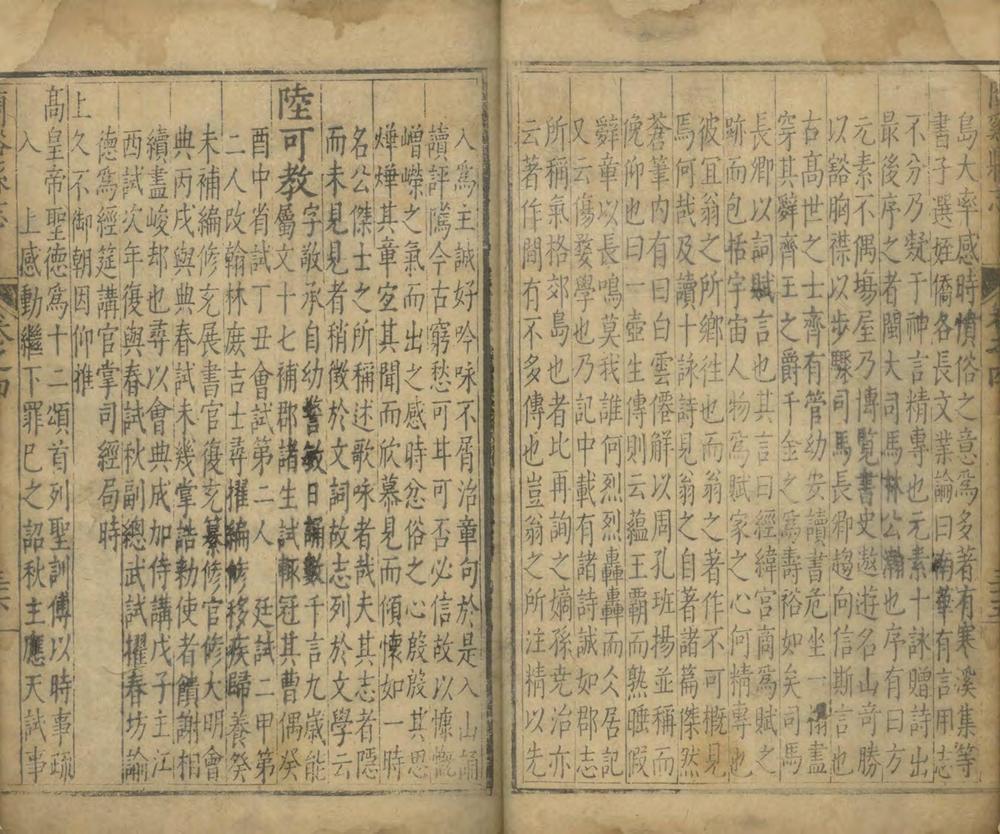 島大率感時憤俗之意爲多著有寒溪集等
書子選姪僑各長文業論曰南華有言用志
不分乃凝于神言精專也元素十詠贈詩出
最後序之者閩大司馬林公瀚也序有曰方
元素不偶塲屋乃博覧書史遨遊名山竒勝
以豁胸襟以步驟司馬長卿趨向信斯言也
古髙世之士齊有管幼安讀書危坐一榻盡
穿其辭齊王之爵千金之爲壽裕如矣司馬
長卿以詞賦言也其言曰經緯宫商爲賦之
跡而包括宇宙人物爲賦家之心何精專也
彼冝翁之所鄉徃也而翁之著作不可概見
焉何哉及讀十詠詩見翁之自著諸篇傑然
蒼筆内有曰白雲僊解以周孔班揚並稱而
俛仰也曰一壺生傳則云蘊王霸而熟睡假
辭章以長鳴莫我誰何烈烈轟轟而久居記
又云傷婺學也乃記中載有諸詩誠如郡志
所稱氣格郊島也者比再詢之嫡孫尭治亦
云著作間有不多傳也豈翁之所注精以先
入爲主誠好吟咏不屑治章句於是入山誦
讀評隲今古窮愁可耳可否必信故以慷慨
嶒嶸之氣而出之感時忿俗之心殷殷其思
燁燁其章宐其聞而欣慕見而傾懷如一時
名公傑士之所稱述歌咏者哉夫其志者隱
而未見見者稍徴於文詞故志列於文學云
陸可教字敬承自幼警敏日誦數千言九嵗能
屬文十七補郡諸生試輒冠其曹偶癸
酉中省試丁丑會試第二人 廷試二甲第
二人改翰林庻吉士尋擢編修移疾歸養癸
未補編修充展書官復充纂修官修大明會
典丙戌與典春試未幾掌誥勑使者饋謝相
續盡峻却也尋以會典成加侍講戊子主江
西試次年復與春試秋副總武試擢春坊諭
德爲經筵講官掌司經局時
上久不御朝因仰推
髙皇帝聖德爲十二頌首列聖訓傅以時事疏
入 上感動繼下罪巳之詔秋主應天試事